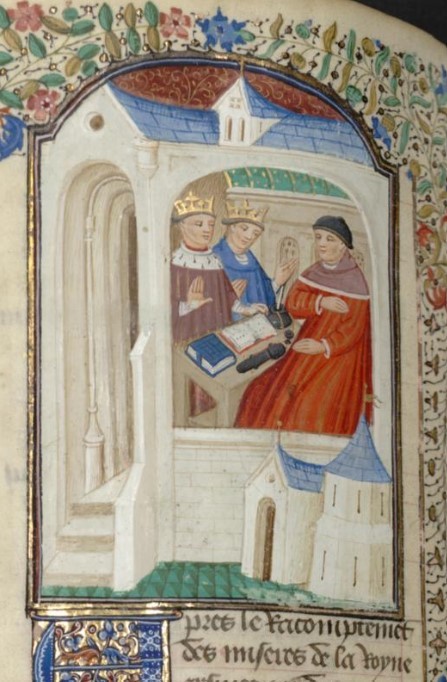 pres le Racomptemēt
des miseres de la Royne